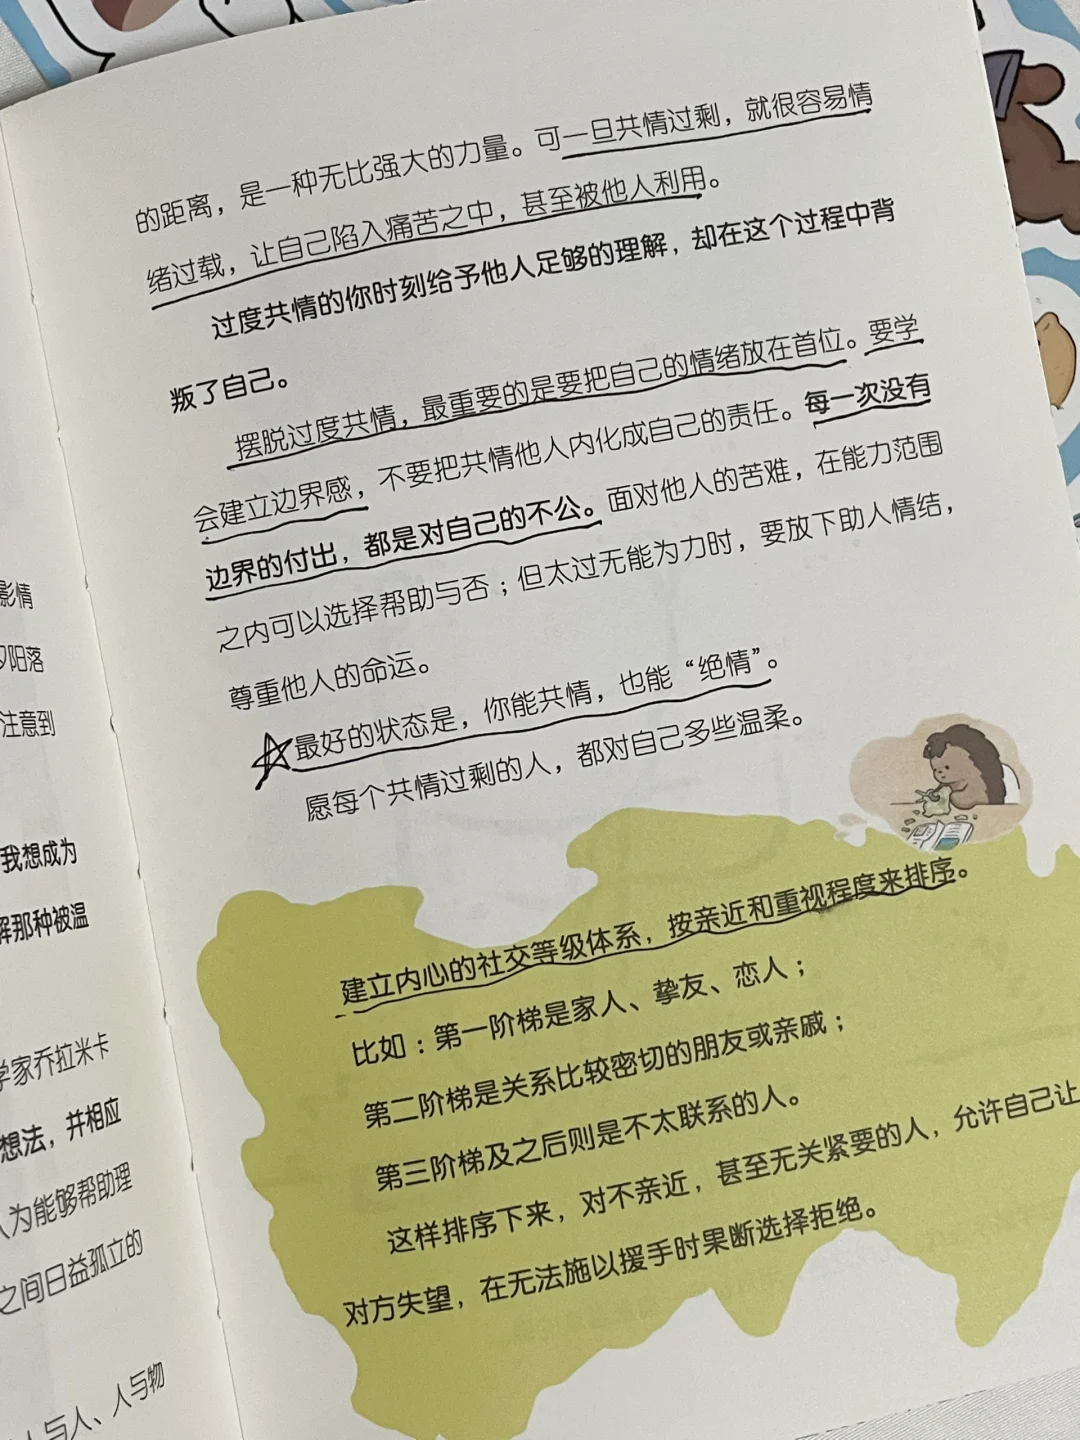 影情
夕阳落
注意到
我想成为
解那种被温
学家乔拉米卡
想法，并相应
人为能够帮助理
之间日益孤立的
人与人、人与物
的距离，是一种无比强大的力量。可一旦共情过剩，就很容易情
绪过载，让自己陷入痛苦之中，甚至被他人利用。
过度共情的你时刻给予他人足够的理解，却在这个过程中背
叛了自己。
摆脱过度共情，最重要的是要把自己的情绪放在首位。要学
会建立边界感，不要把共情他人内化成自己的责任。每一次没有
边界的付出，都是对自己的不公。面对他人的苦难，在能力范围
之内可以选择帮助与否；但太过无能为力时，要放下助人情结，
尊重他人的命运。
最好的状态是，你能共情，也能“绝情”。
愿每个共情过剩的人，都对自己多些温柔。
建立内心的社交等级体系，按亲近和重视程度来排序。
比如：第一阶梯是家人、挚友、恋人；
第二阶梯是关系比较密切的朋友或亲戚；
第三阶梯及之后则是不太联系的人。
这样排序下来，对不亲近，甚至无关紧要的人，允许自己让
对方失望，在无法施以援手时果断选择拒绝。